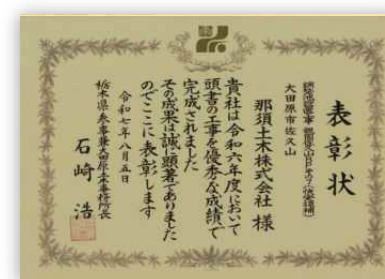 表彰状
大田原市佐久山
那須土木株式会社 様
貴社は令和六年度において
頭書の工事を優秀な成績で
完成されました
その成果は誠に顕著でありました
のでここに表彰します
令和七年八月五日
栃木県参事兼大田原土木事務所長
石崎 浩